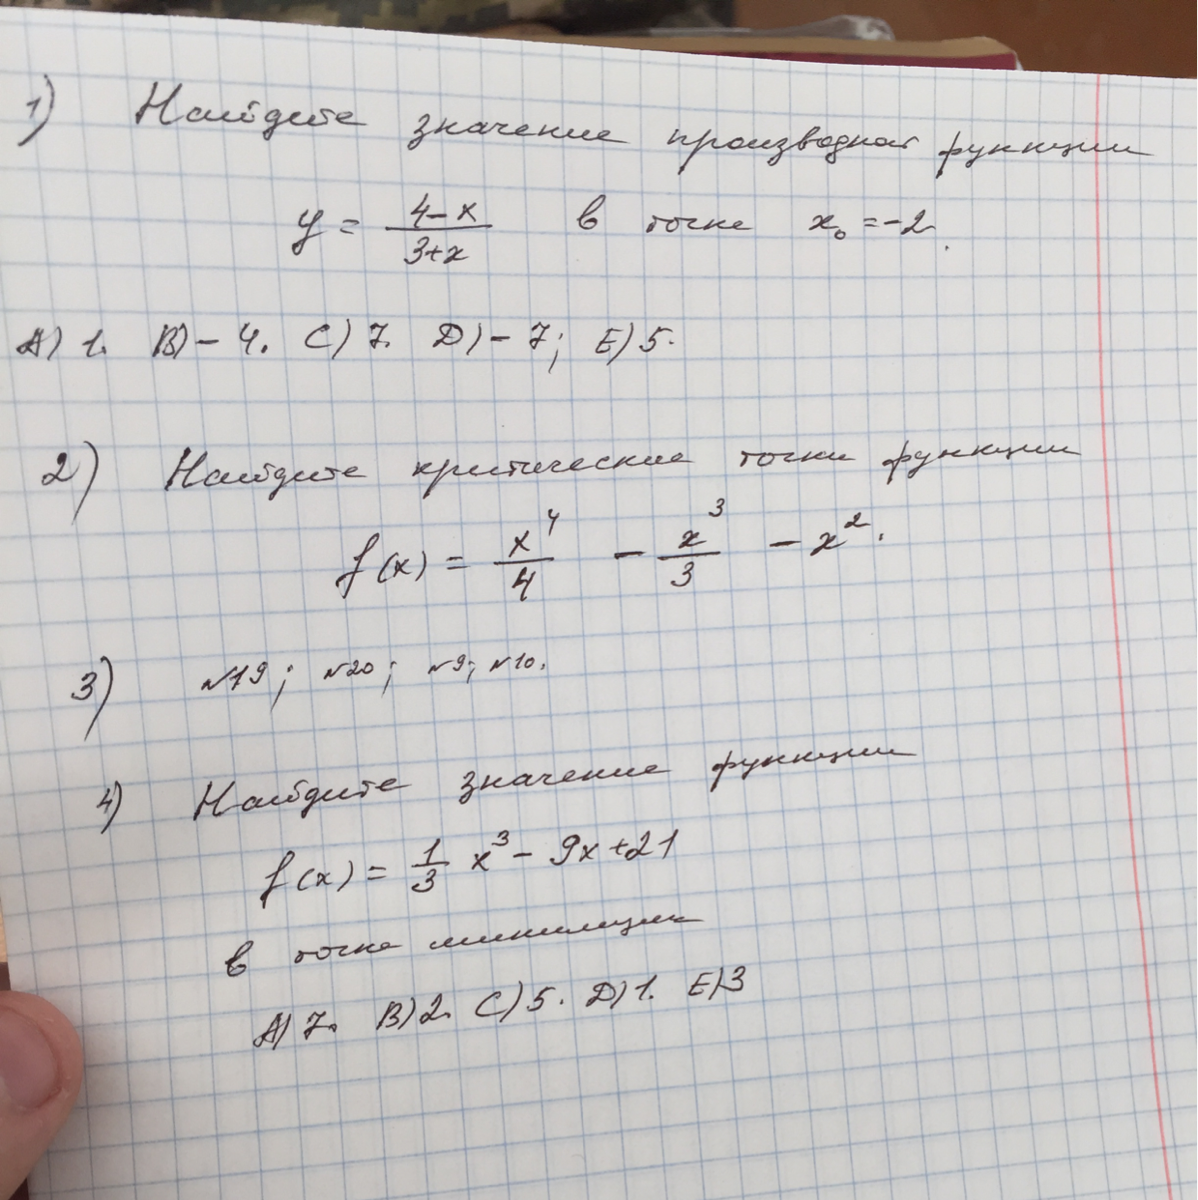 1) Найдите значение производной функции
y = (4-x)/(3+x) в точке x₀ = -2.
A) 1. B) - 4. C) 7. D) - 7; E) 5.
2) Найдите критические точки функции
f(x) = x⁴/4 - x³/3 - x².
3) №19; №20; №9; №10.
4) Найдите значение функции
f(x) = 1/3 x³ - 9x + 21
в точке минимума
A) 7. B) 2. C) 5. D) 1. E) 3